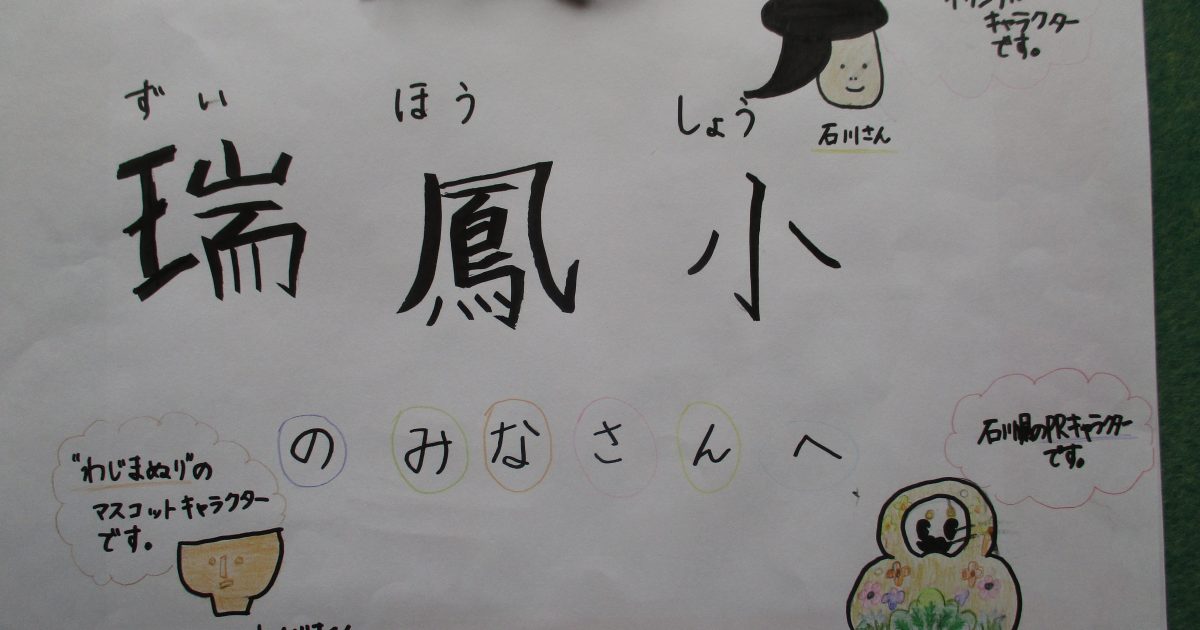 キャラクター
です。
石川さん
ずい ほう しょう
瑞鳳小
のみなさんへ
"わじまぬり"の
マスコットキャラクター
です。
石川県のPRキャラクター
です。